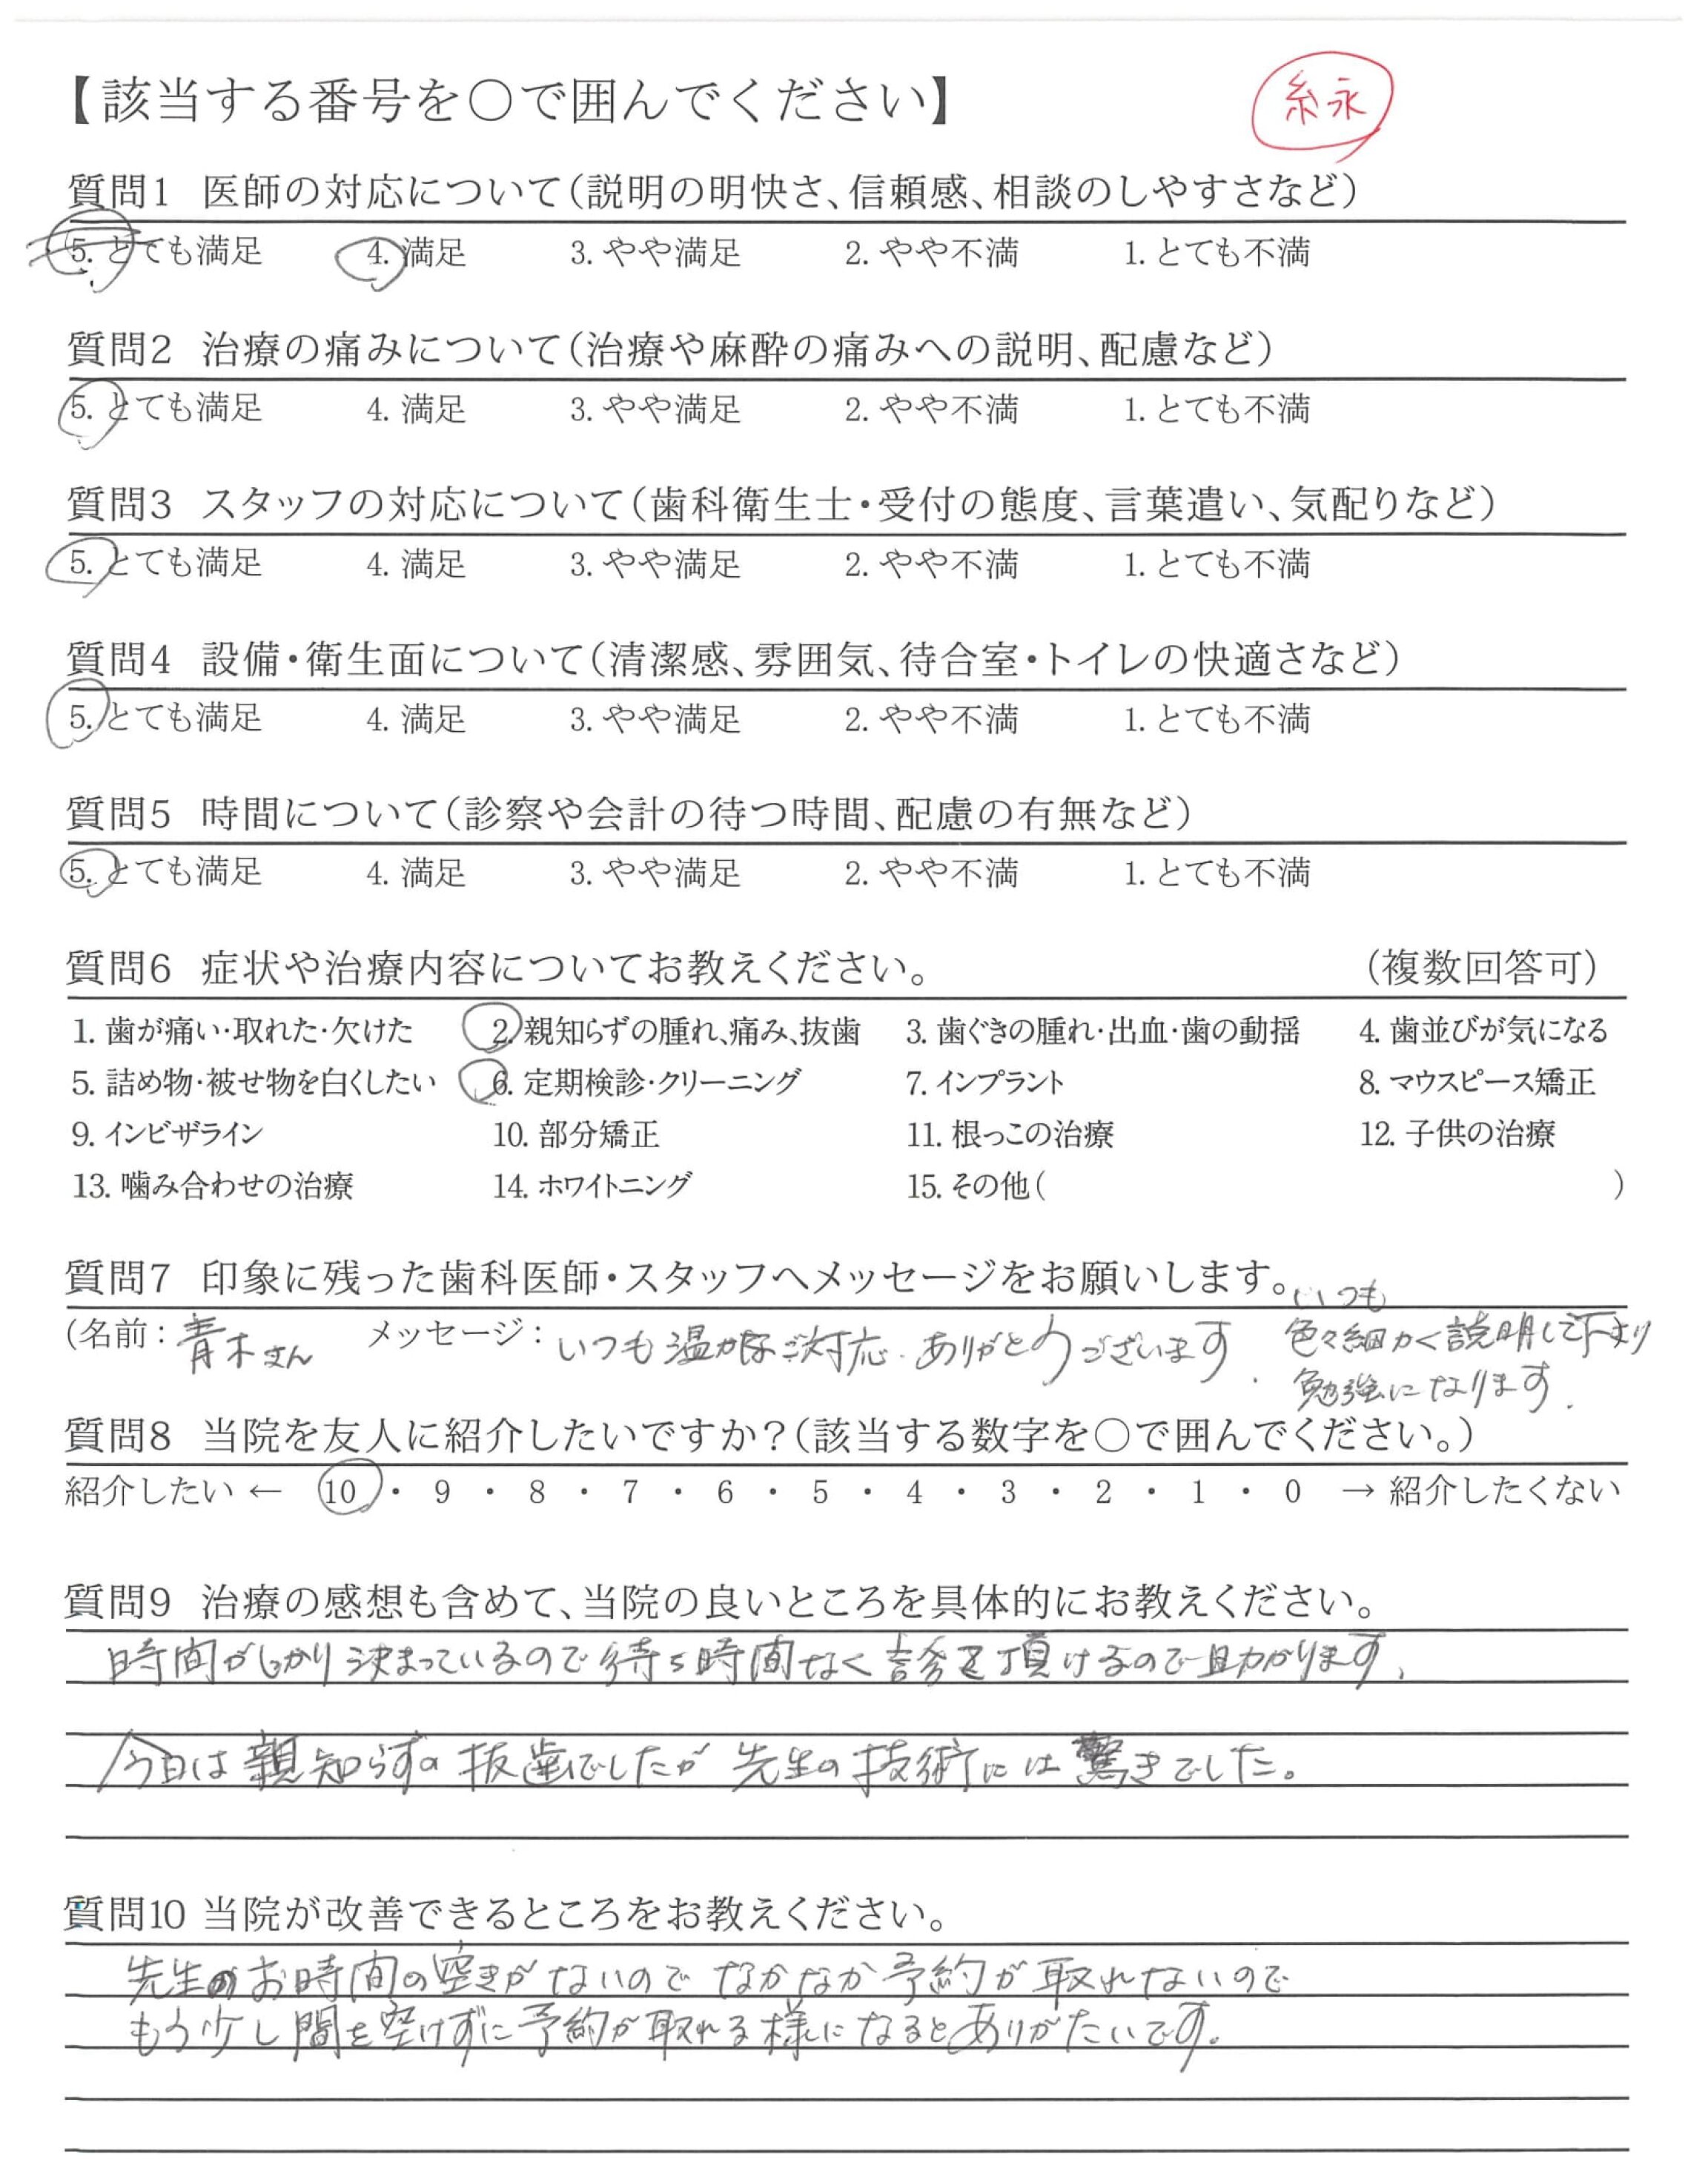 【該当する番号を○で囲んでください】
糸永
質問1 医師の対応について(説明の明快さ、信頼感、相談のしやすさなど)
5. とても満足 4. 満足 3. やや満足 2. やや不満 1. とても不満
質問2 治療の痛みについて(治療や麻酔の痛みへの説明、配慮など)
5. とても満足 4. 満足 3. やや満足 2. やや不満 1. とても不満
質問3 スタッフの対応について(歯科衛生士・受付の態度、言葉遣い、気配りなど)
5. とても満足 4. 満足 3. やや満足 2. やや不満 1. とても不満
質問4 設備・衛生面について(清潔感、雰囲気、待合室・トイレの快適さなど)
5. とても満足 4. 満足 3. やや満足 2. やや不満 1. とても不満
質問5 時間について(診察や会計の待つ時間、配慮の有無など)
5. とても満足 4. 満足 3. やや満足 2. やや不満 1. とても不満
質問6 症状や治療内容についてお教えください。 (複数回答可)
1. 歯が痛い・取れた・欠けた 2. 親知らずの腫れ、痛み、抜歯 3. 歯ぐきの腫れ・出血・歯の動揺 4. 歯並びが気になる
5. 詰め物・被せ物を白くしたい 6. 定期検診・クリーニング 7. インプラント 8. マウスピース矯正
9. インビザライン 10. 部分矯正 11. 根っこの治療 12. 子供の治療
13. 噛み合わせの治療 14. ホワイトニング 15. その他( )
質問7 印象に残った歯科医師・スタッフへメッセージをお願いします。
(名前: 青木さん メッセージ: いつも温かなご対応、ありがとうございます。
いつも
色々細かく説明して下さり
勉強になります。
質問8 当院を友人に紹介したいですか?(該当する数字を○で囲んでください。)
紹介したい ← 10 ・ 9 ・ 8 ・ 7 ・ 6 ・ 5 ・ 4 ・ 3 ・ 2 ・ 1 ・ 0 → 紹介したくない
質問9 治療の感想も含めて、当院の良いところを具体的にお教えください。
時間がしっかり決まっているので待ち時間なく診察を頂けるので助かります。
今日は親知らずの抜歯でしたが先生の技術には驚きでした。
質問10 当院が改善できるところをお教えください。
先生のお時間の空きがないのでなかなか予約が取れないので
もう少し間を空けずに予約が取れる様になるとありがたいです。